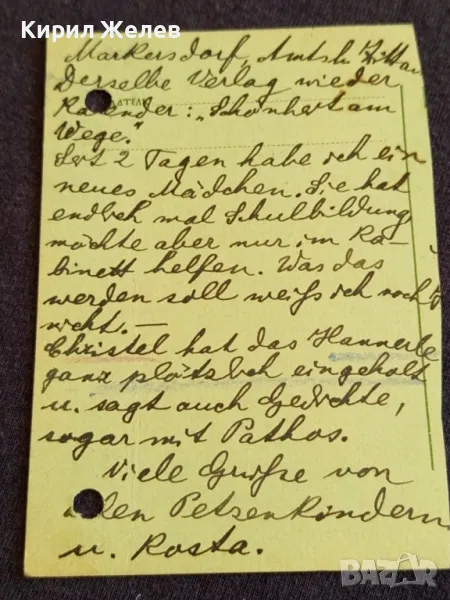 Кирил Желев
Markersdorf, Amtsh. Zittau
Derselbe Verlag wieder
Kalender: „Schönheit am
Wege."
Seit 2 Tagen habe ich ein
neues Mädchen. Sie hat
endlich mal Schulbildung
möchte aber nur im Ka-
binett helfen. Was das
werden soll weiß ich noch
nicht. —
Christel hat das Hannerle
ganz plötzlich eingeholt
u. sagt auch Gedichte,
sogar mit Pathos.
Viele Grüße von
allen Petzenkindern
u. Kosta.
bazar.bg